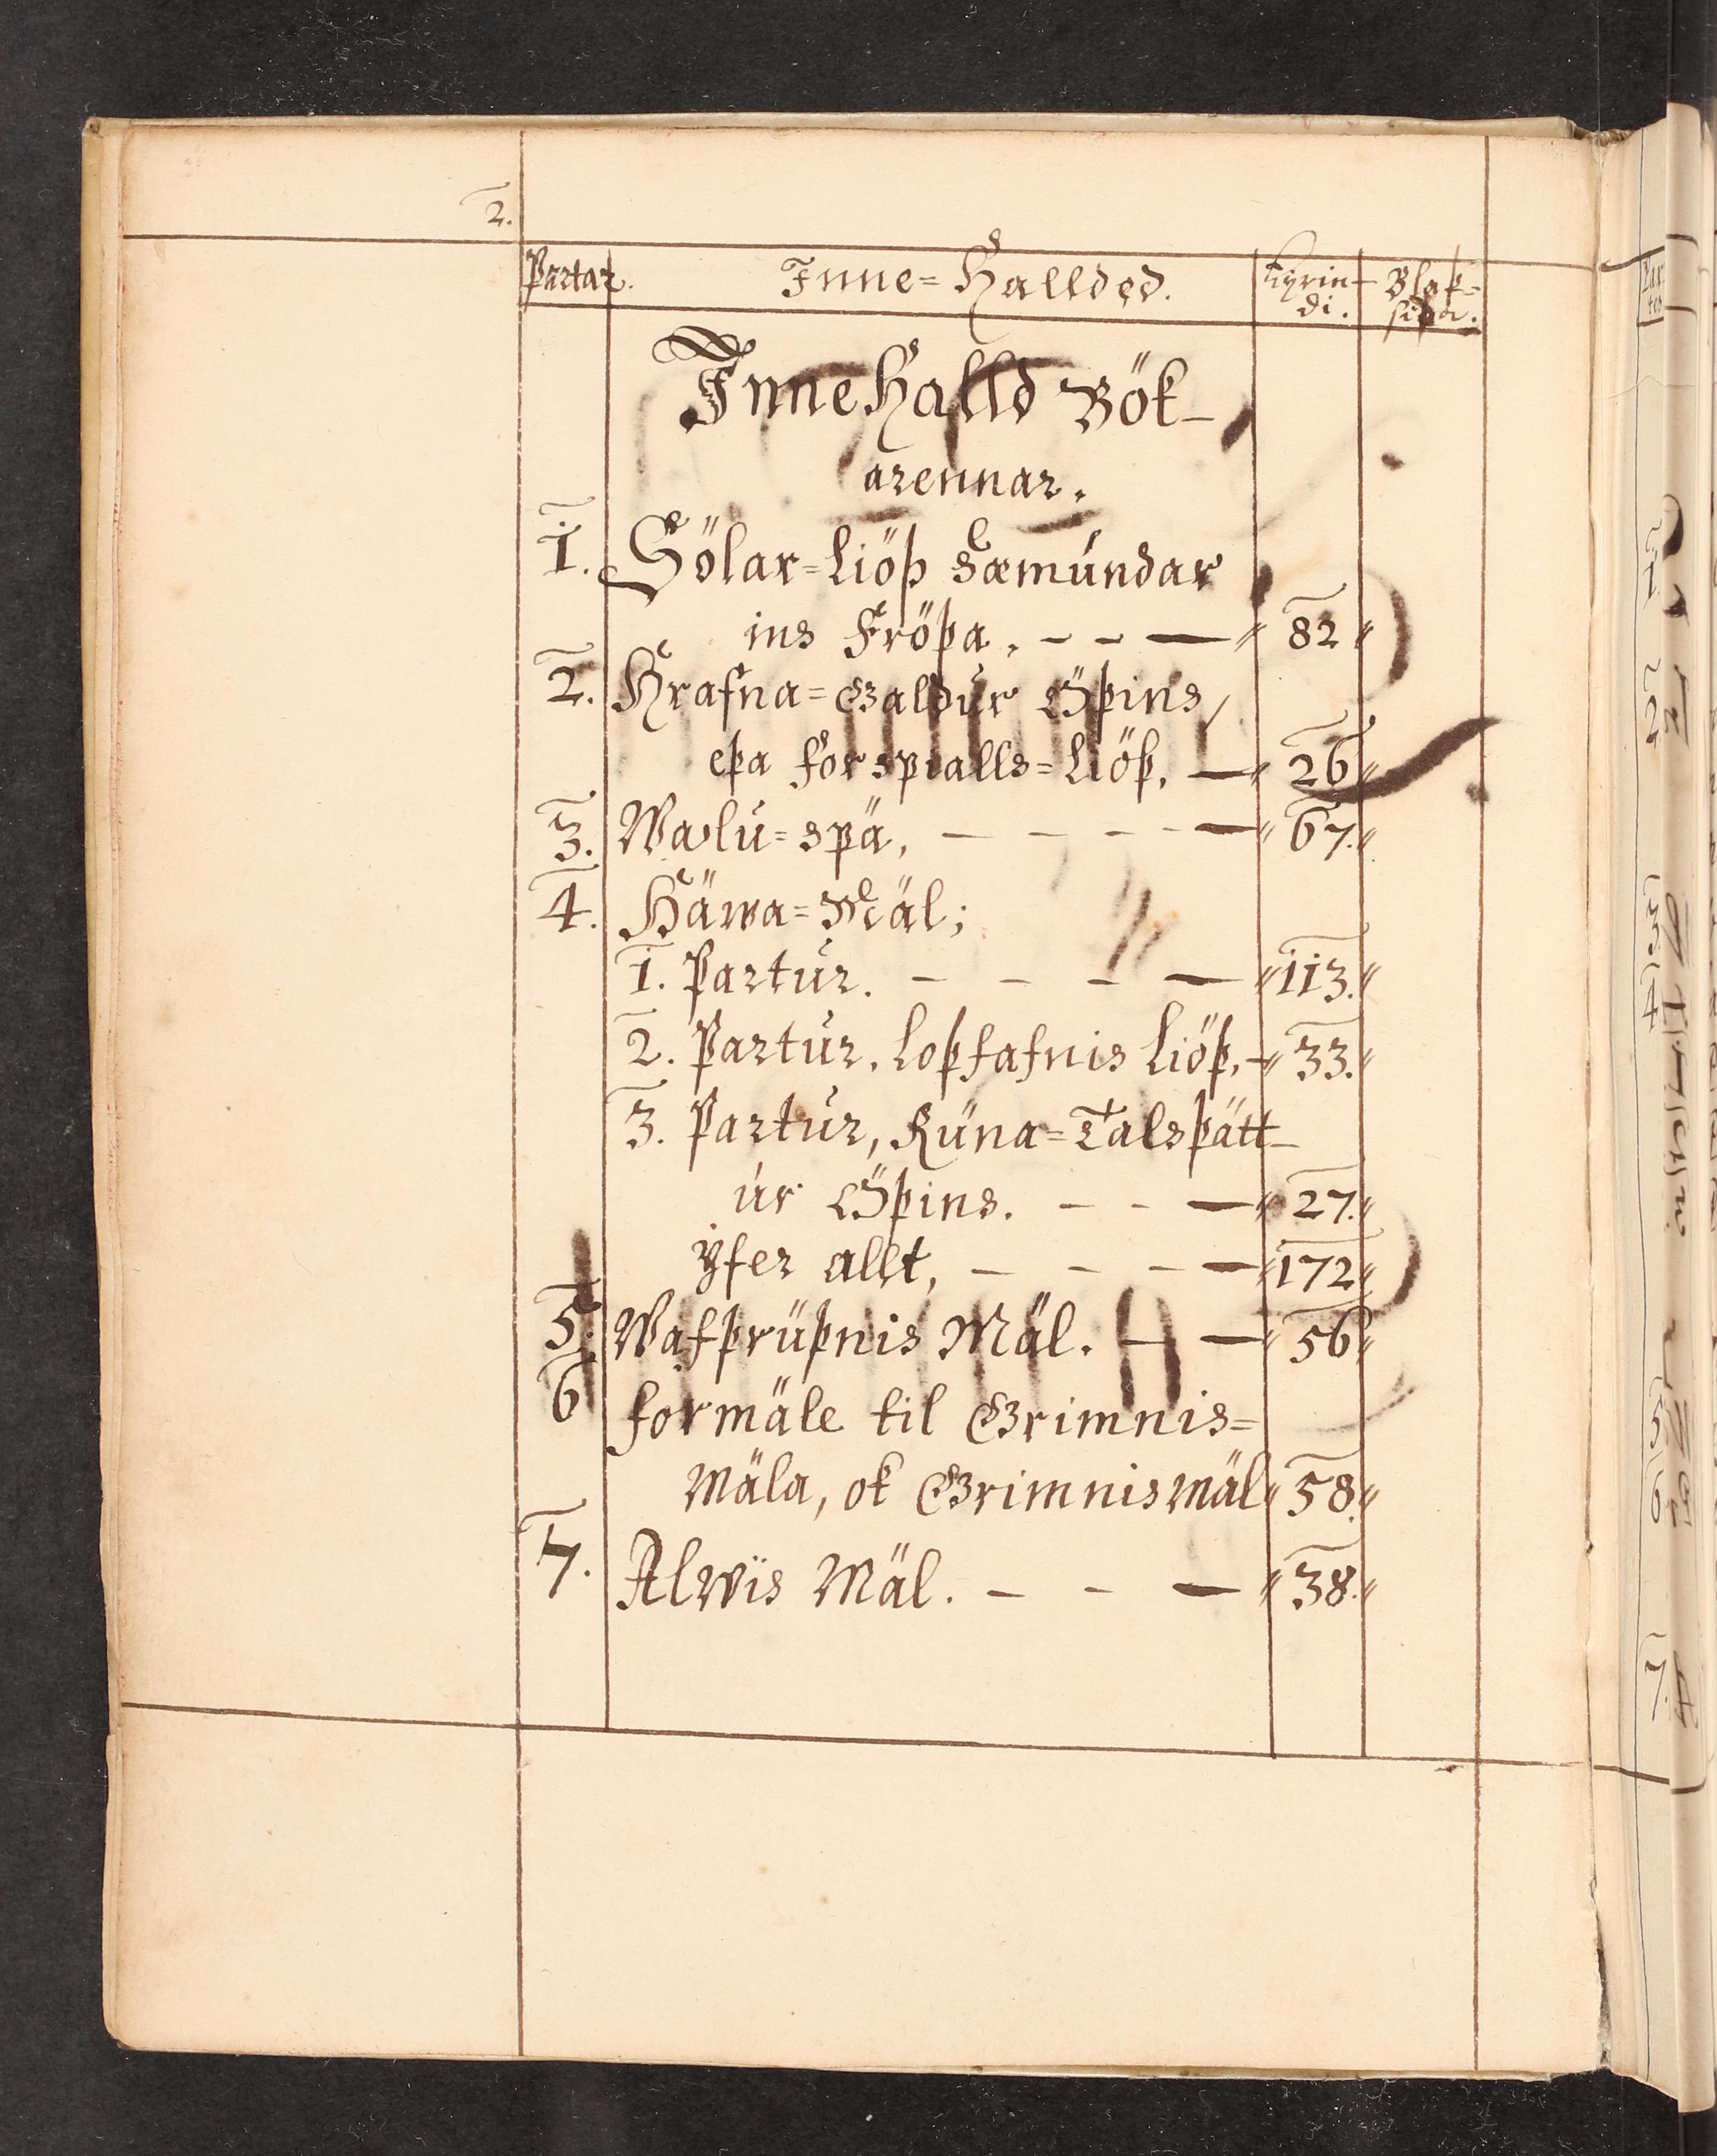 2.
Partar. Inne=Hallded. Eyrin- Blaþ=
di. siða.
InneHalld Bök-
arennar.
1. Sölar=Liöþ Sæmundar
ins Fröþa. - - — " 82 "
2. Hrafna=Galdur Öþins,
eþa forspialls=Liöþ. — " 26 "
3. Walu=spä, — - - - — " 67. "
4. Häwa=Mäl;
1. Partur. - - - — " 113. "
2. Partur. Loþfafnis Liöþ. - " 33. "
3. Partur, Rüna=Talsþätt-
ur Öþins. - - — " 27. "
yfer allt, - - - — " 172 "
5. Wafþrüþnis Mäl. — — " 56 "
6 formäle til Grimnis=
Mäla, ok Grimnismäl " 58. "
7. Alwïs Mäl. - - — " 38. "